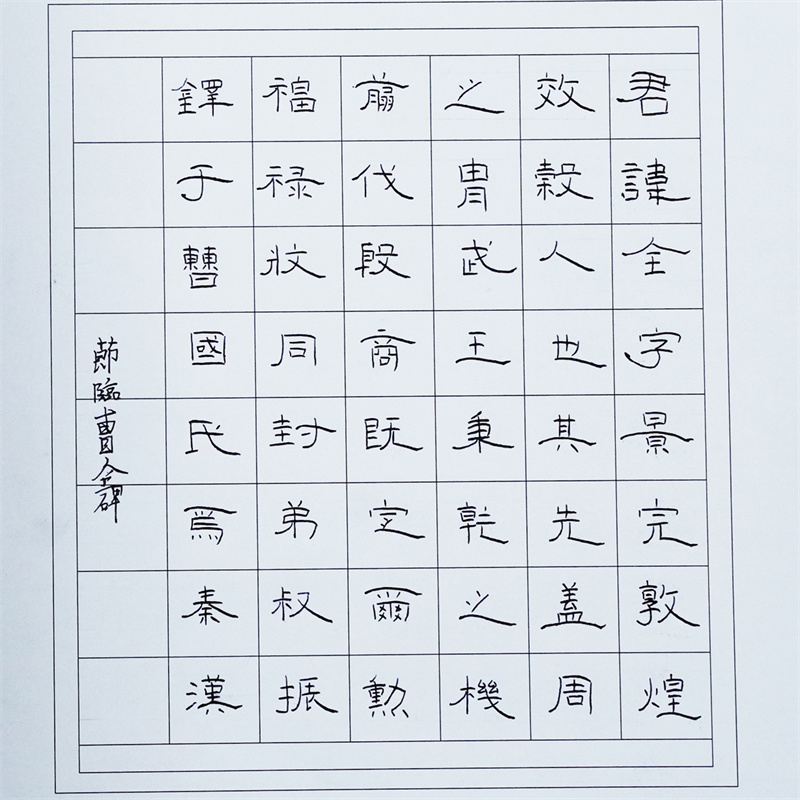 君諱全字景完敦煌
效穀人也其先蓋周
之胄武王秉乾之機
翦伐殷商既定爾勳
福禄攸同封弟叔振
鐸于曹國氏焉秦漢
節臨曹全碑